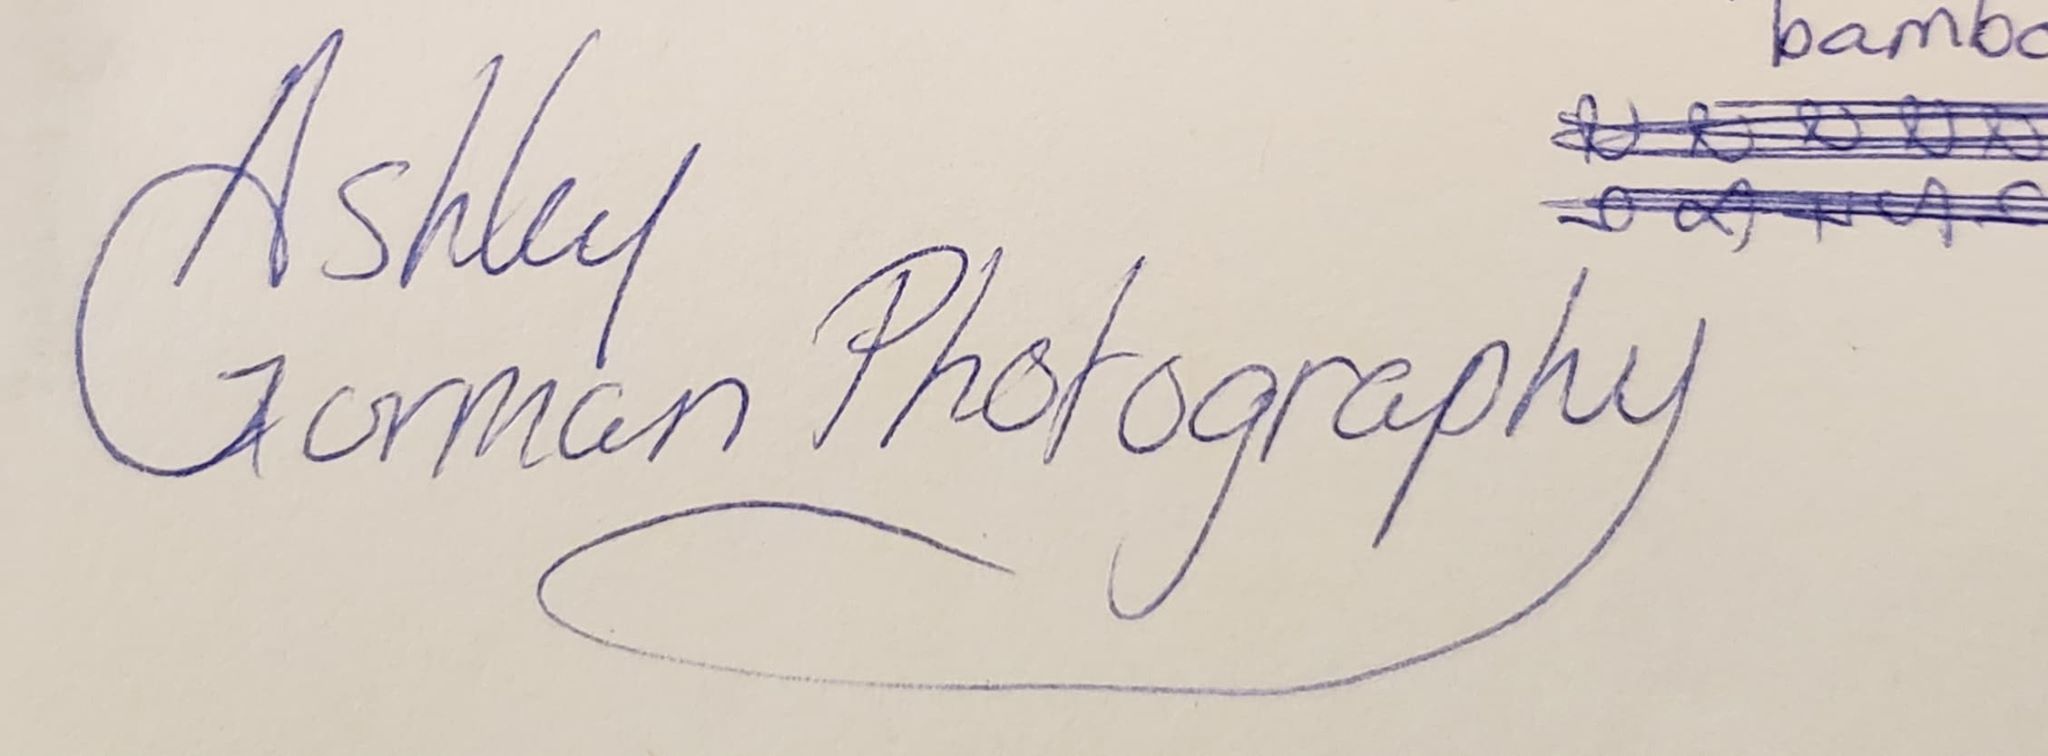 bambo
Ashley
Gorman Photography